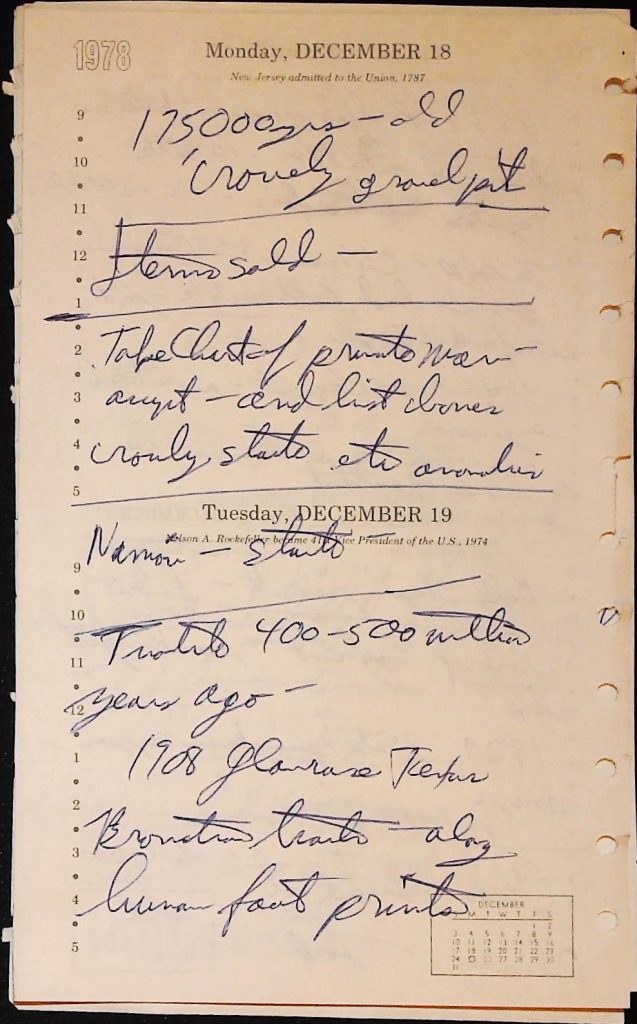 1978
Monday, DECEMBER 18
New Jersey admitted to the Union, 1787
9
175000 yrs - old
10
gravel pit
11
Items sold -
12
1
2
Take Chart of private man-
3
uscript - and list bones
4
strata etc
5
Tuesday, DECEMBER 19
Nelson A. Rockefeller became 41st Vice President of the U.S., 1974
strata -
9
10
400-500 million
11
years ago -
12
1
1908 Glenrose Texas
2
tracks - along
3
human foot prints
4
5
DECEMBER
S M T W T F S
1 2
3 4 5 6 7 8 9
10 11 12 13 14 15 16
17 18 19 20 21 22 23
24 27 28 29 30
31